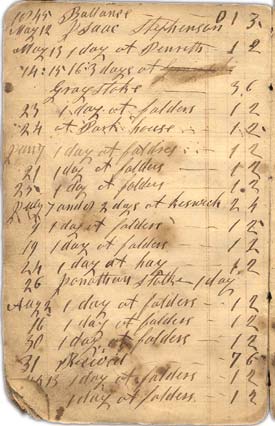 1845 Ballance 0 1 3
May 12 Isaac Stephenson
May 13 1 day at Penreth 1 2
14:15 16:3 days at
Graystoke 3 6
23 1 day at falders 1 2
24 at Park house 1 2
1 day at faldres 1 2
21 1 day at falders 1 2
1 day at falders 1 2
7 and 8 2 days at keswick 2 4
9 1 day at falders 1 2
19 1 day at falders 1 2
24 1 day at hay 1 2
26 Jonathan 1 day
1 day at falders 1 2
16 1 day at falders 1 2
30 1 day at falders 1 2
31 7 6
13 1 day at falders 1 2
1 day at falders 1 2